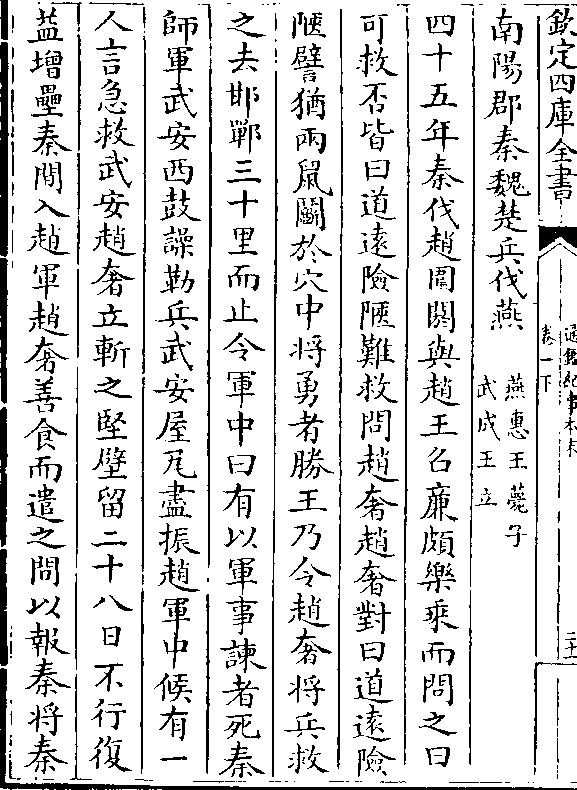 欽定四庫全書
通鑑紀事本末
卷一下
二十
南陽郡秦魏楚兵伐燕
燕惠王薨子
武成王立
四十五年秦伐趙圍閼與趙王召廉頗樂乘而問之曰
可救否皆曰道遠險陿難救問趙奢趙奢對曰道遠險
陿譬猶兩鼠鬭於穴中將勇者勝王乃令趙奢將兵救
之去邯鄲三十里而止令軍中曰有以軍事諫者死秦
師軍武安西鼓譟勒兵武安屋瓦盡振趙軍中候有一
人言急救武安趙奢立斬之堅壁留二十八日不行復
益增壘秦間入趙軍趙奢善食而遣之間以報秦將秦